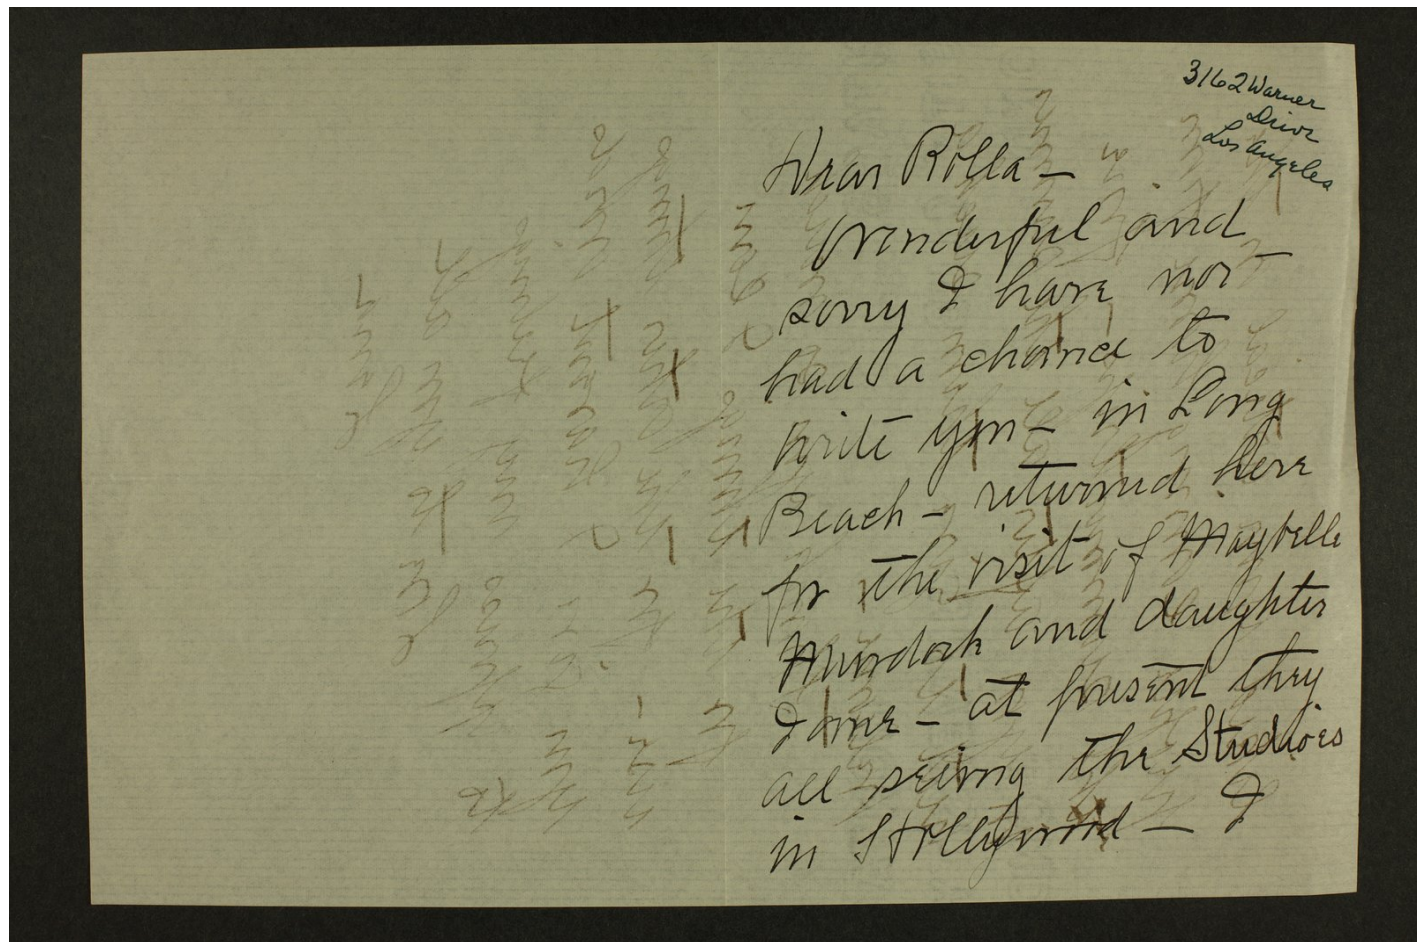 3162 Warner
Drive
Los Angeles
Dear Rolla —
Wonderful and
sorry I have not
had a chance to
write you — in Long
Beach — returned here
for the visit of Maybelle
Murdock and daughter
Jane — at present they
all seeing the Studios
in Hollywood — I